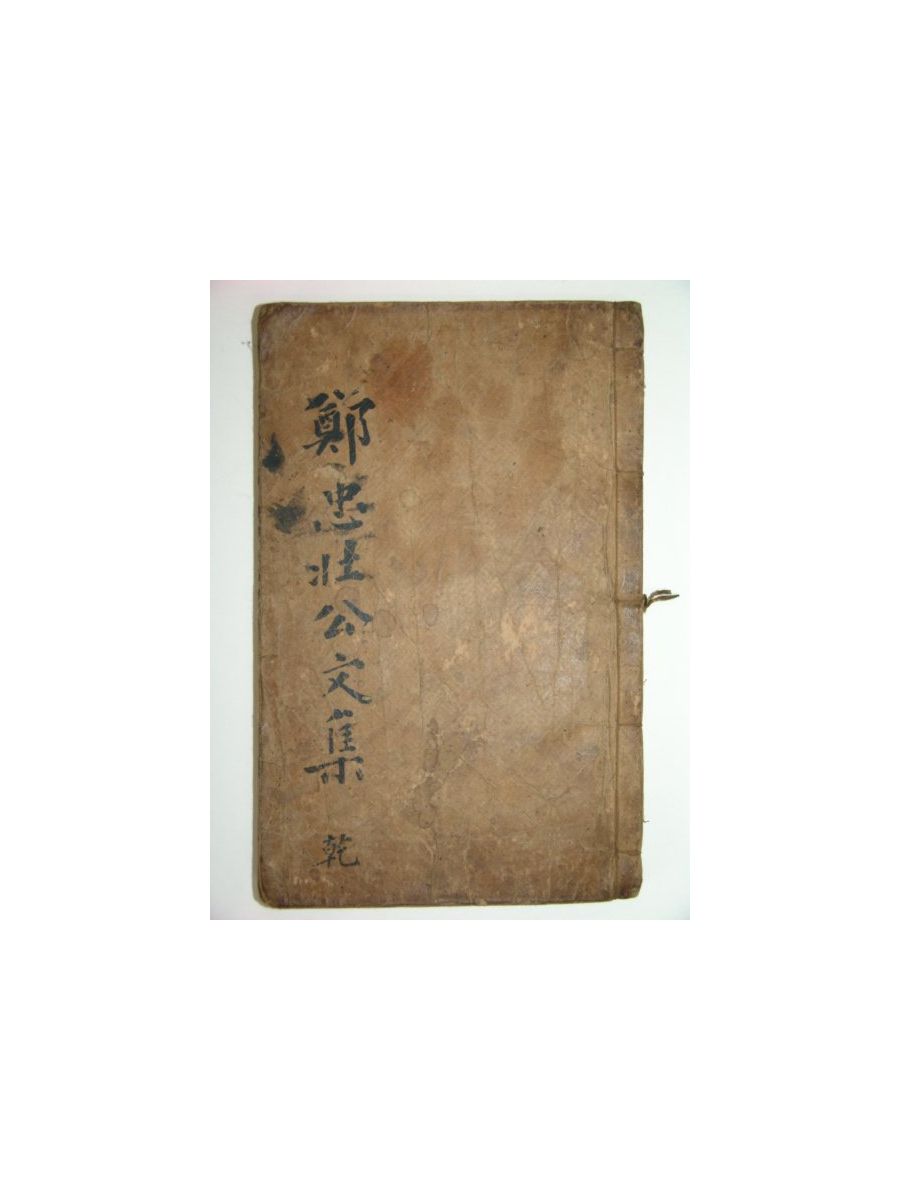 鄭忠壯公文集 乾